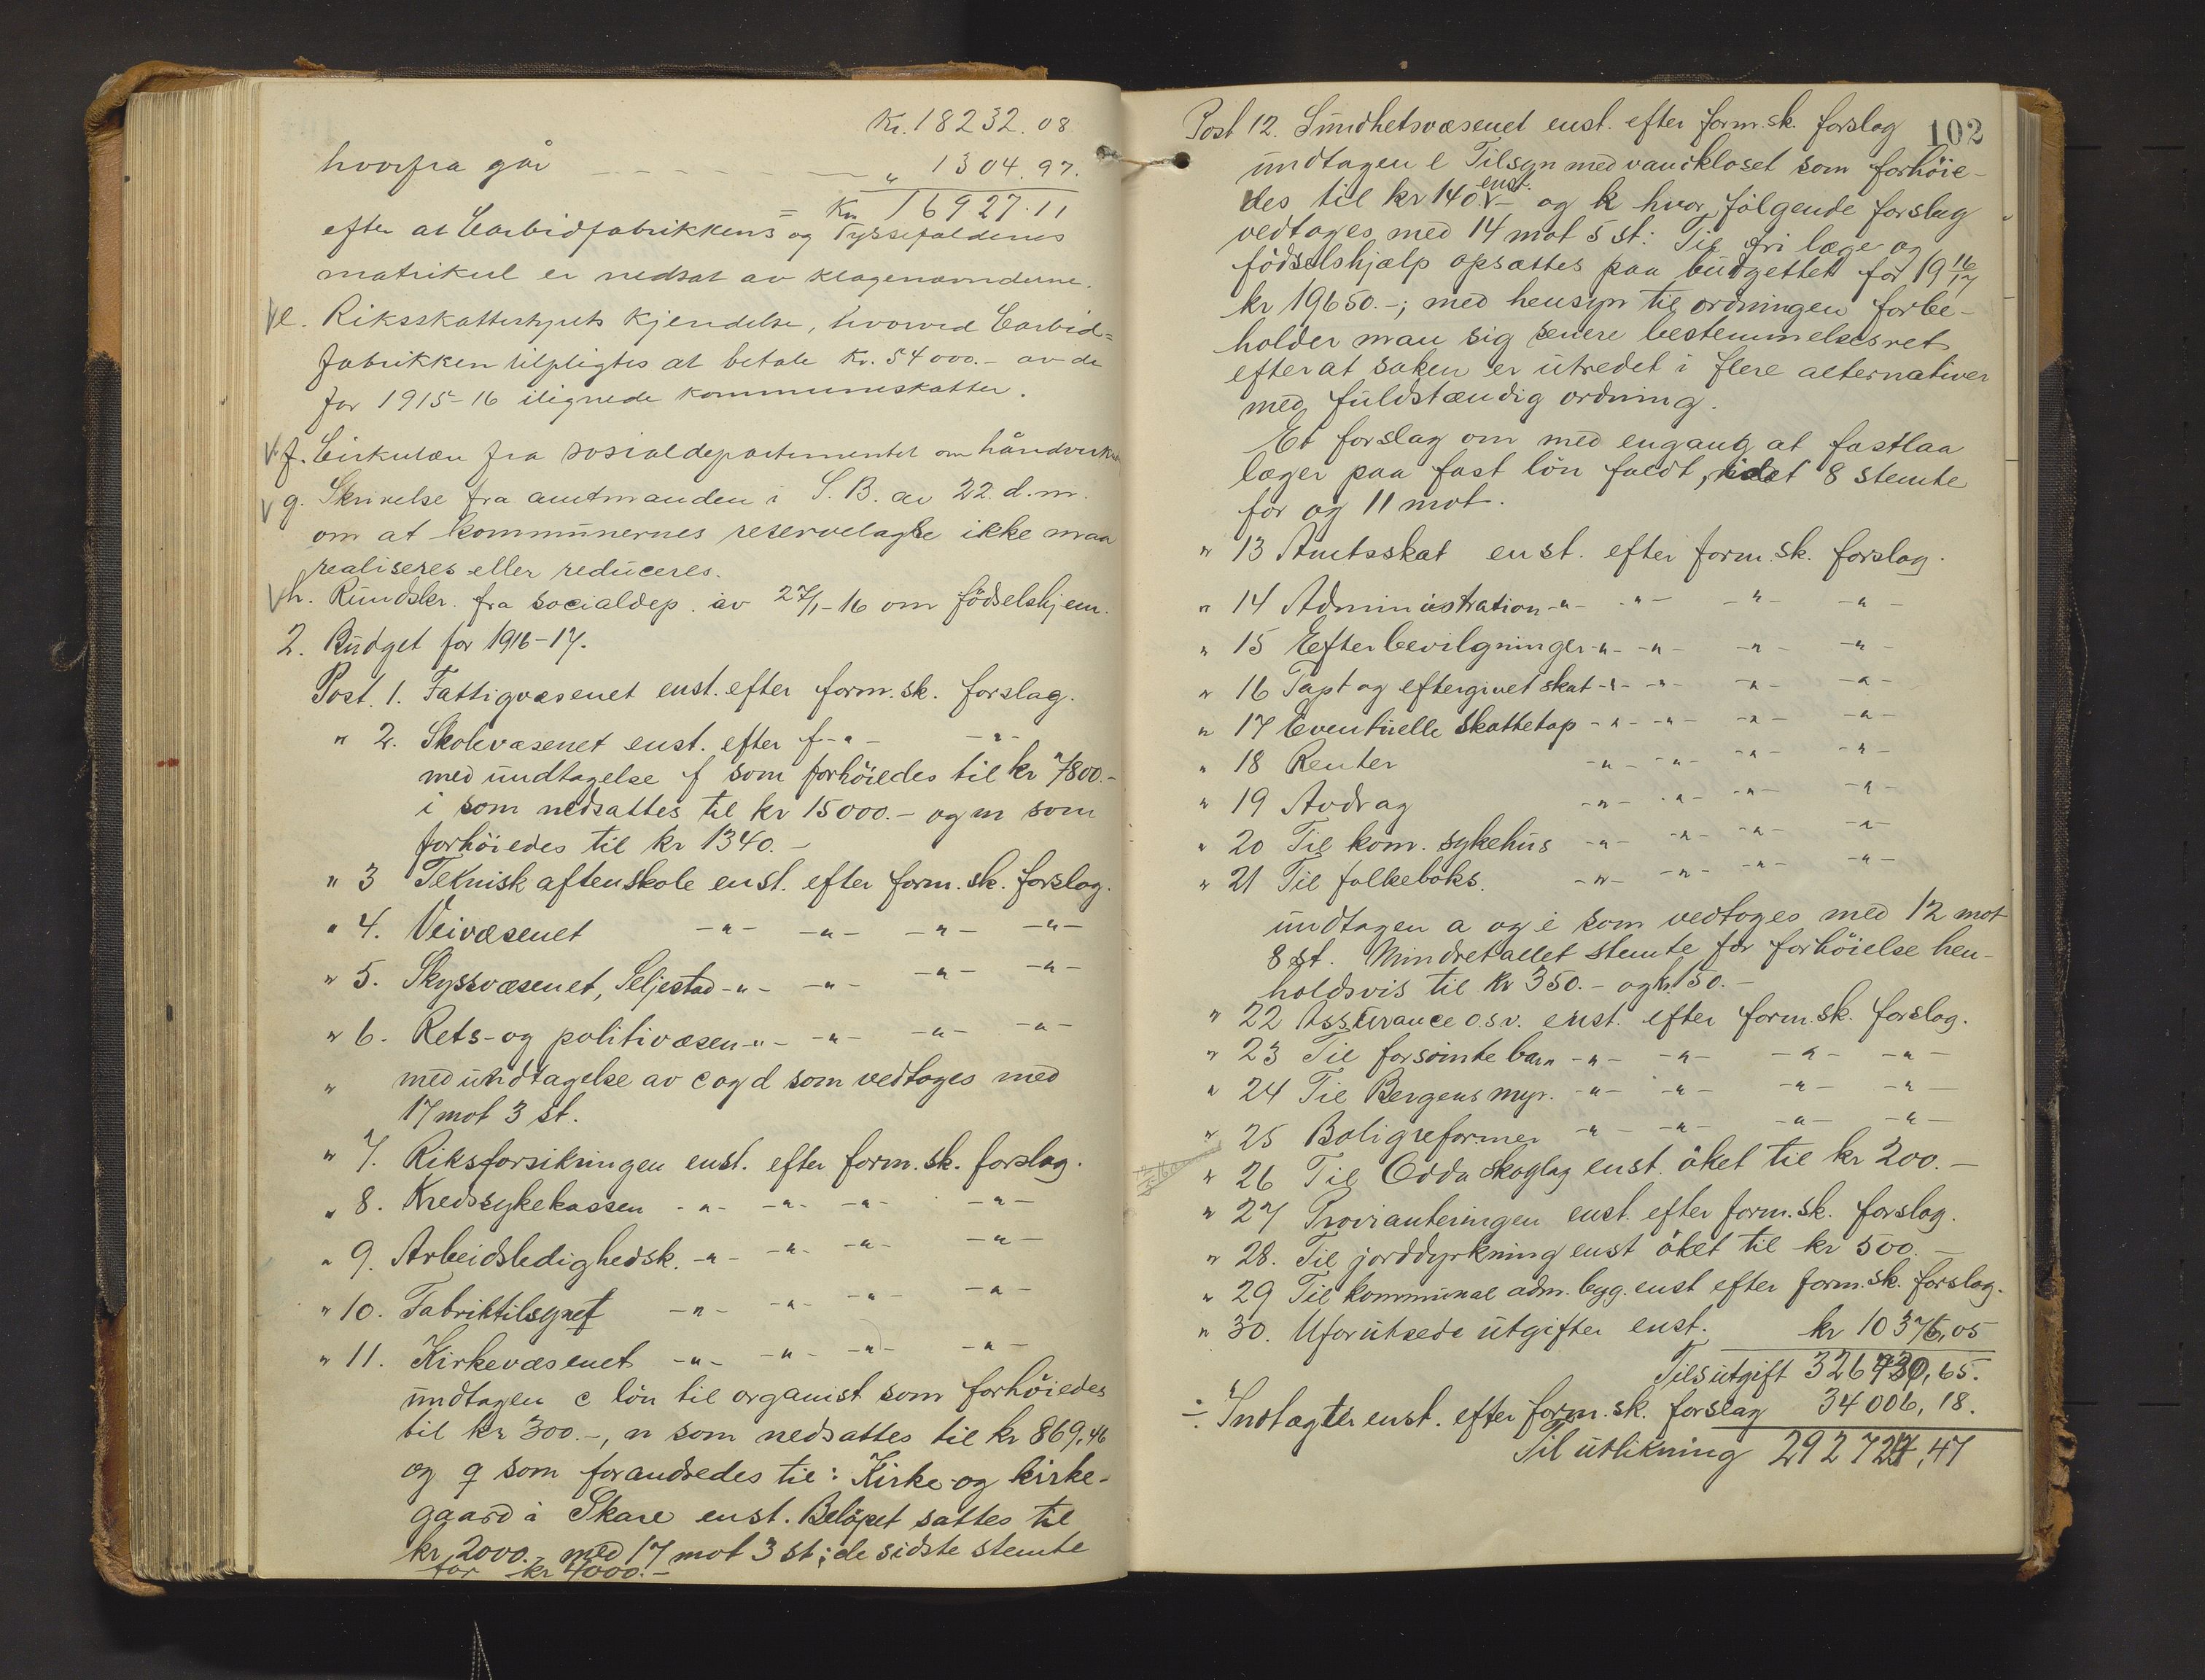 Kr. 18232.08
hvorfra går — — — — — — „ 1304.97.
= Kr 16927.11
efter at Carbidfabrikkens og Tyssefaldenes
matrikul er nedsat av klagenævnderne.
e. Riksskattestyrets kjendelse, hvorved Carbid=
fabrikken tilpligtes at betale Kr. 54000.- av de
for 1915-16 ilignede kommuneskatter.
f. Cirkulær fra sosialdepartementet om håndverk
g. Skrivelse fra amtmanden i S. B. av 22. d.m.
om at kommunernes reservelagre ikke maa
realiseres eller reduceres.
h. Rundskr. fra socialdep. av 27/1-16 om födselshjem.
2. Budget for 1916-17.
Post. 1. Fattigvæsenet enst. efter form.sk. forslag.
" 2. Skolevæsenet enst. efter f-"- -"-
med undtagelse f som forhöiedes til kr 7800.-
i som nedsattes til kr 15000.- og m som
forhöiedes til kr 1340.-
" 3 Teknisk aftenskole enst. efter form.sk. forslag.
" 4. Veivæsenet -"- -"- -"- -"-
" 5. Skyssvæsenet, Seljestad -"- -"- -"- -"-
" 6. Rets- og politivæsen -"- -"- -"- -"-
" med undtagelse av c og d som vedtoges med
17 mot 3 st.
" 7. Riksforsikringen enst. efter form.sk. forslag.
" 8. Kredssykekassen -"- -"- -"- -"-
" 9. Arbeidsledighedsk. -"- -"- -"- -"-
" 10. Fabriktilsynet -"- -"- -"- -"-
" 11. Kirkevæsenet -"- -"- -"- -"-
undtagen c lön til organist som forhöiedes
til kr 300.-, n som nedsattes til kr 869,46
og q som forandredes til: Kirke- og kirke-
gaard i Skare enst. Belöpet sattes til
kr 2000.- med 17 mot 3 st; de sidste stemte
for kr 4000.-
102
Post 12. Sundhetsvæsenet enst. efter form.sk. forslag
undtagen l Tilsyn med vandkloset som forhöie-
des til kr 140.- enst. og k hvor fölgende forslag
vedtages med 14 mot 5 st: Til fri læge og
födselshjælp opsættes paa budgettet for 19 16/17
kr 19650.-; med hensyn til ordningen forbe-
holder man sig senere bestemmelsesret
efter at saken er utredet i flere alternativer
med fuldstændig ordning.
Et forslag om med engang at fastlaa
læger paa fast lön faldt, idet 8 stemte
for og 11 mot.
" 13 Amtsskat enst. efter form.sk. forslag.
" 14 Administration -"- -"- -"- -"-
" 15 Efterbevilgninger -"- -"- -"- -"-
" 16 Tapt og eftergivet skat -"- -"- -"- -"-
" 17 Eventuelle skattetap -"- -"- -"- -"-
" 18 Renter -"- -"- -"- -"-
" 19 Avdrag -"- -"- -"- -"-
" 20 Til kom. sykehus -"- -"- -"- -"-
" 21 Til folkeboks. -"- -"- -"- -"-
undtagen a og i som vedtoges med 12 mot
8 st. Mindretallet stemte for forhöielse hen-
holdsvis til kr 350.- og kr 150.-
" 22 Assurance o.s.v. enst. efter form.sk. forslag.
" 23 Til forsömte barn -"- -"- -"- -"-
" 24 Til Bergens myr. -"- -"- -"- -"-
" 25 Boligreformer -"- -"- -"- -"-
" 26 Til Odda skoglag enst. öket til kr 200.-
" 27 Provianteringen enst. efter form.sk. forslag.
" 28. Til jorddyrkning enst öket til kr 500.-
" 29 Til kommunal adm. byg. enst efter form.sk. forslag.
" 30. Uforutsede utgifter enst. kr 10376,05
Tils utgift 326730,65.
÷ Indtægter enst. efter form.sk. forslag 34006,18.
Til utlikning 292724,47